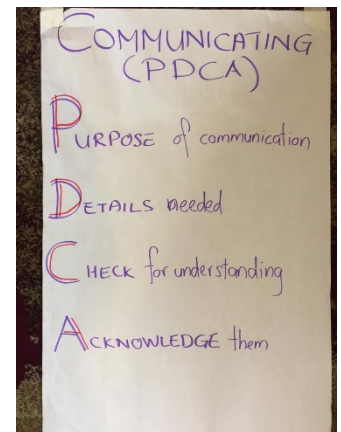 COMMUNICATING
(PDCA)
PURPOSE of communication
DETAILS needed
CHECK for understanding
ACKNOWLEDGE them